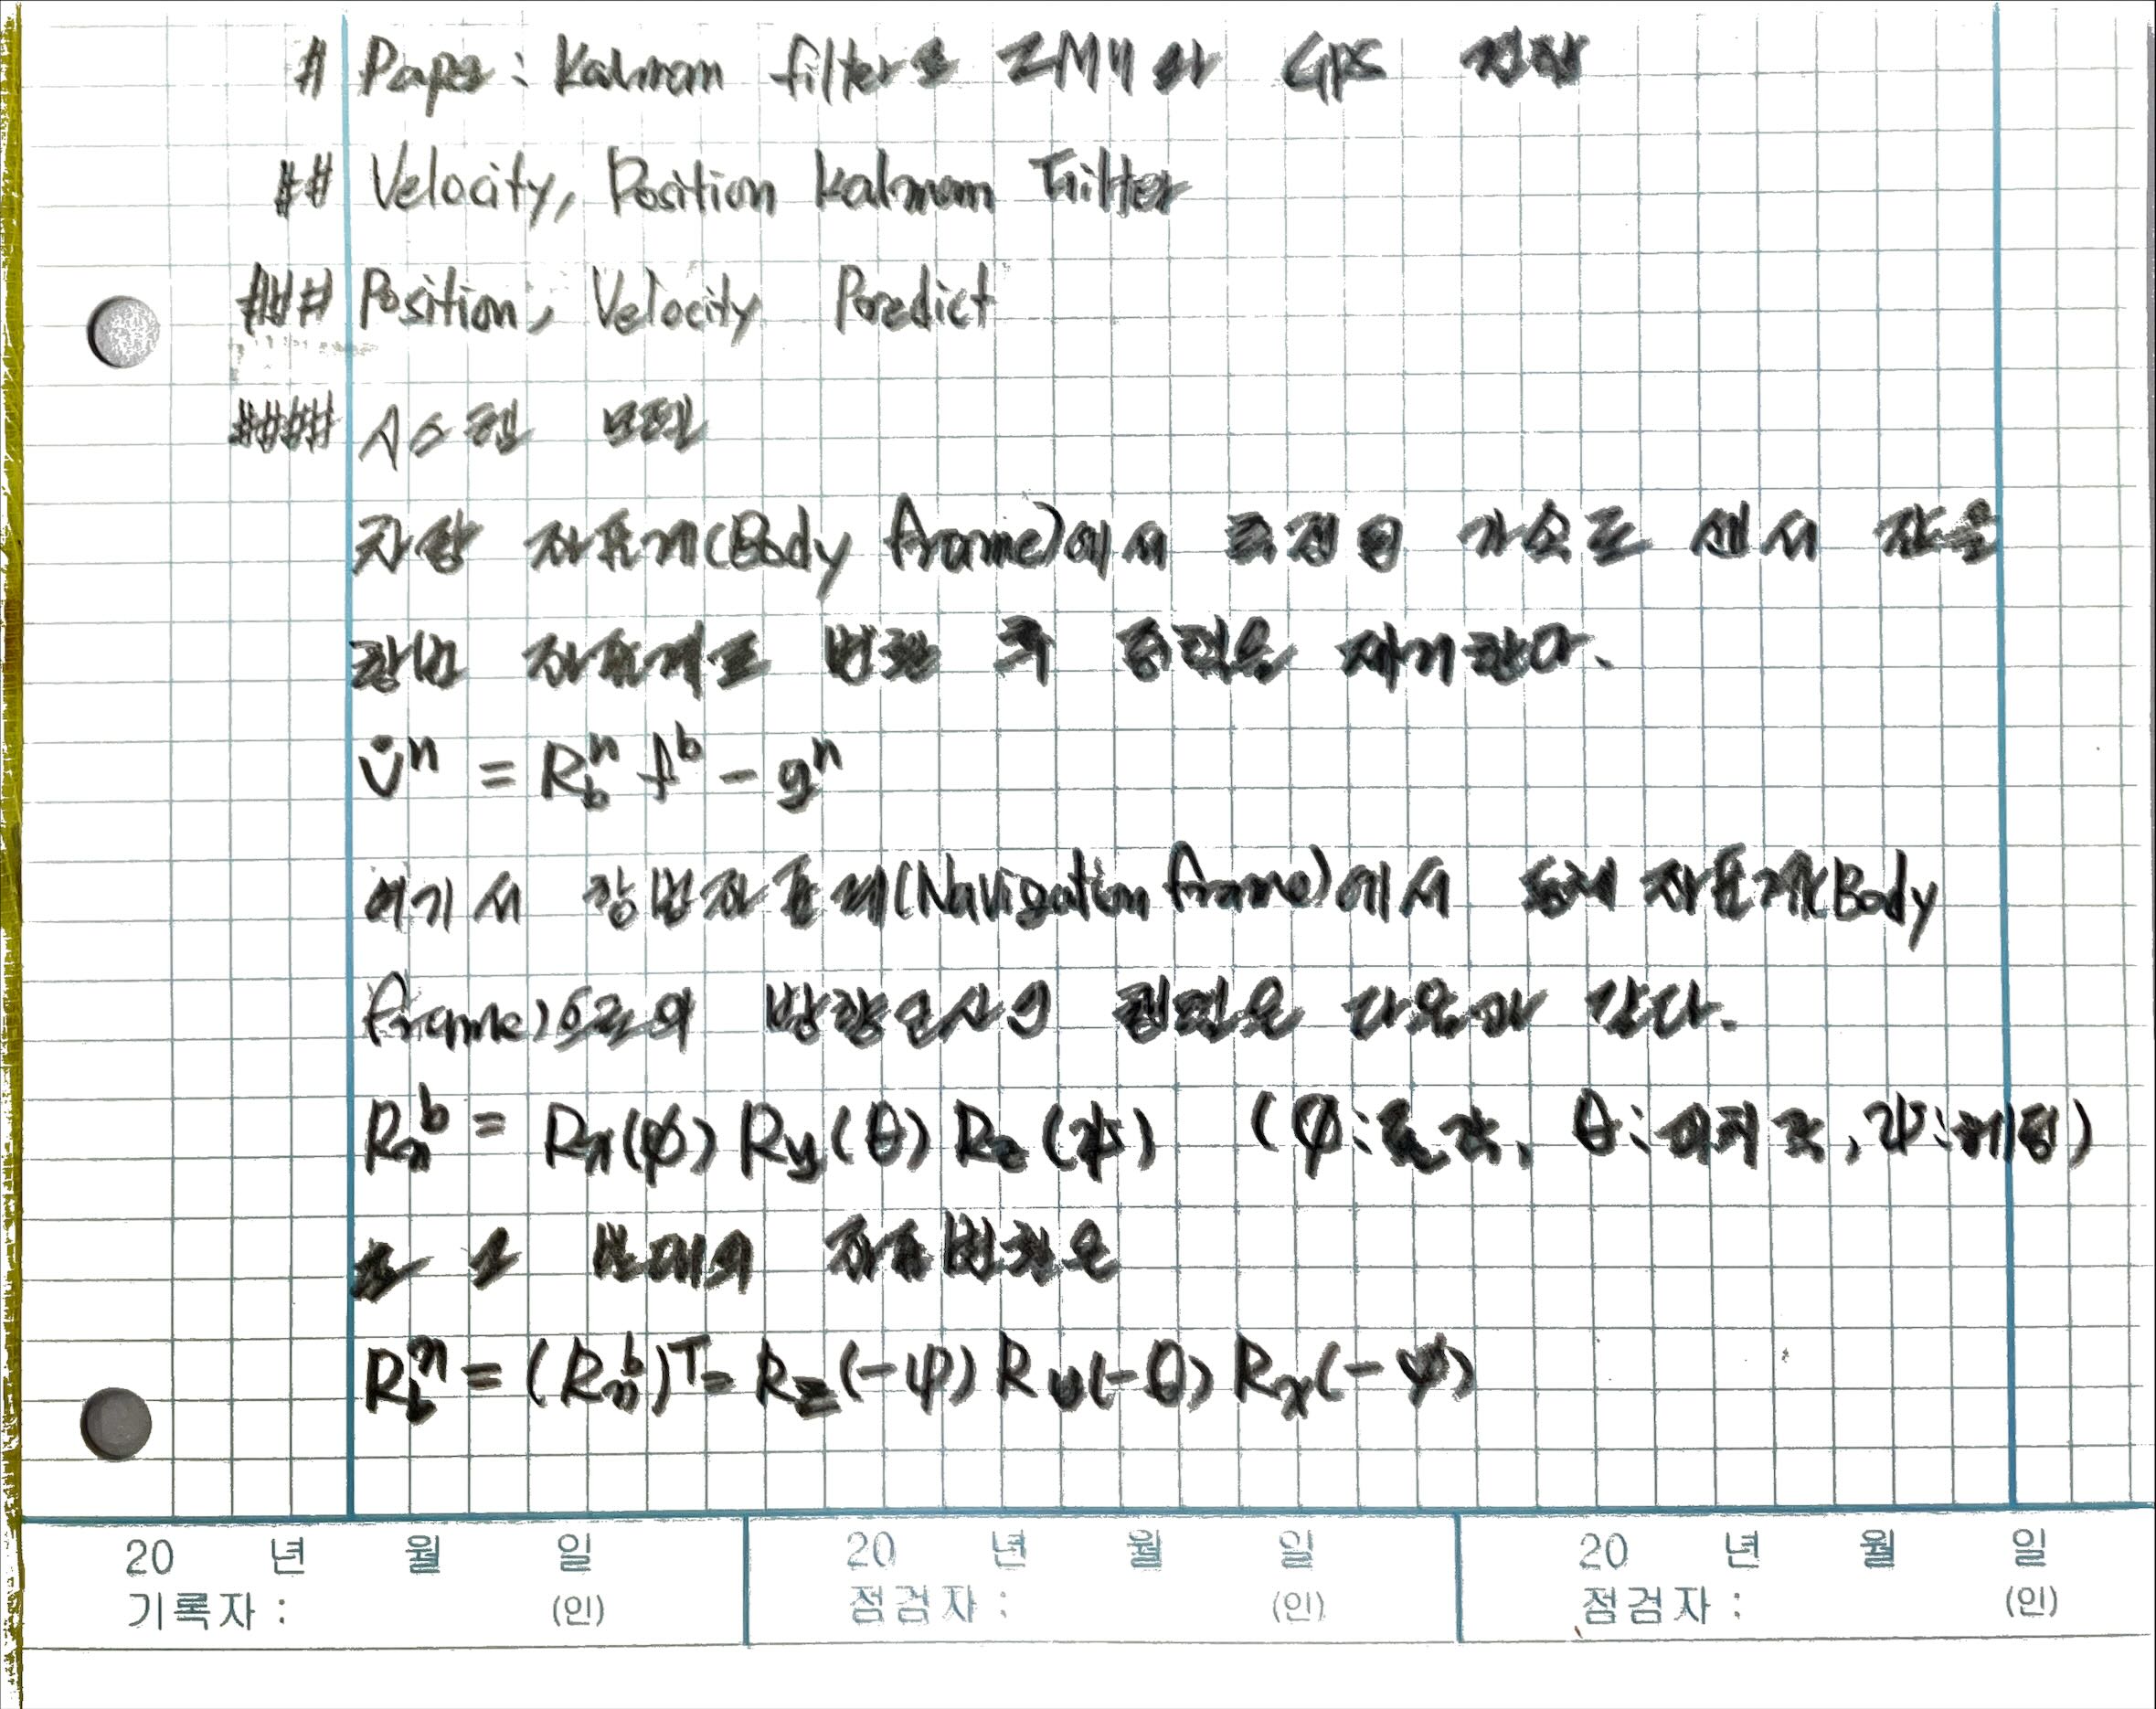 # Paper: Kalman filter로 IMU와 GPS 결합
## Velocity, Position Kalman Filter
### Position, Velocity Predict
#### 시스템 모델
차량 좌표계(Body frame)에서 측정된 가속도 센서 값을
항법 좌표계로 변환 후 중력을 제거한다.
v̇ⁿ = R_b^n f^b - gⁿ
여기서 항법좌표계(Navigation frame)에서 동체 좌표계(Body
frame)으로의 방향코사인 행렬은 다음과 같다.
R_n^b = R_x(φ) R_y(θ) R_z(ψ) (φ:롤각, θ:피치각, ψ:헤딩)
반대의 좌표변환은
R_b^n = (R_n^b)^T = R_z(-ψ) R_y(-θ) R_x(-φ)
20 년 월 일 20 년 월 일 20 년 월 일
기록자 : (인) 점검자 : (인) 점검자 : (인)